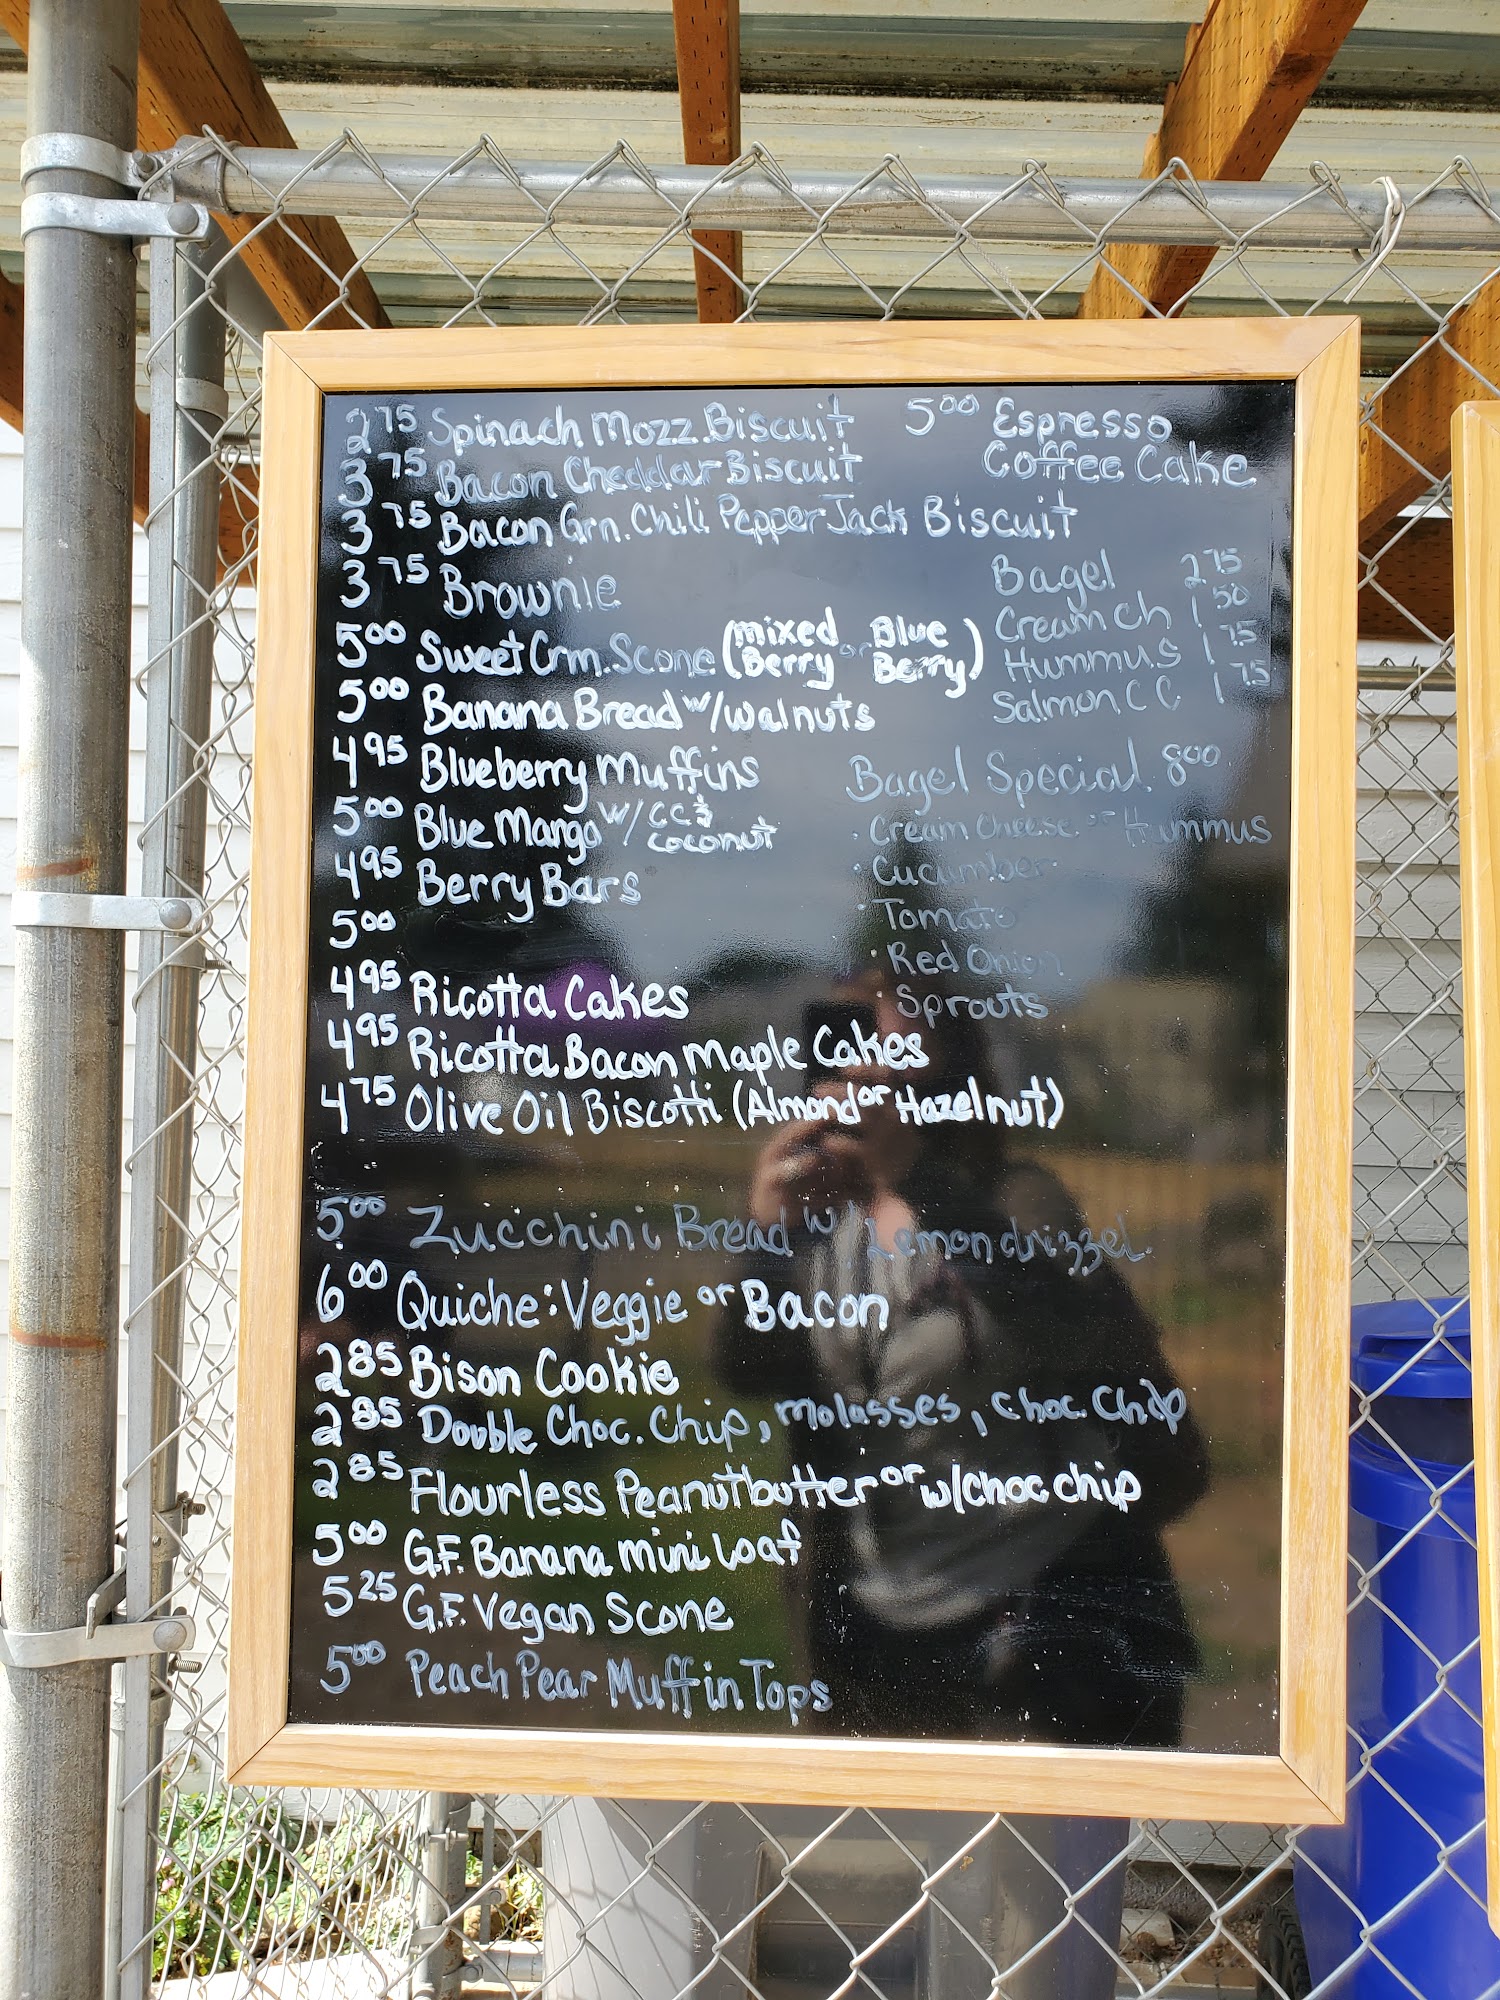 2.75 Spinach Mozz. Biscuit
3.75 Bacon Cheddar Biscuit
3.75 Bacon Grn. Chili Pepper Jack Biscuit
3.75 Brownie
5.00 Sweet Crm. Scone (mixed Berry or Blue Berry)
5.00 Banana Bread w/walnuts
4.95 Blueberry Muffins
5.00 Blue Mango w/ CC & coconut
4.95 Berry Bars
5.00
4.95 Ricotta Cakes
4.95 Ricotta Bacon Maple Cakes
4.75 Olive Oil Biscotti (Almond or Hazelnut)
5.00 Zucchini Bread w/ Lemon drizzel.
6.00 Quiche: Veggie or Bacon
2.85 Bison Cookie
2.85 Double Choc. Chip, molasses, Choc. Chip
2.85 Flourless Peanutbutter or w/choc chip
5.00 G.F. Banana mini Loaf
5.25 G.F. Vegan Scone
5.00 Peach Pear Muffin Tops
5.00 Espresso
Coffee Cake
Bagel 2.75
Cream Ch 1.50
Hummus 1.75
Salmon CC 1.75
Bagel Special 8.00
· Cream Cheese or Hummus
· Cucumber
· Tomato
· Red Onion
· Sprouts